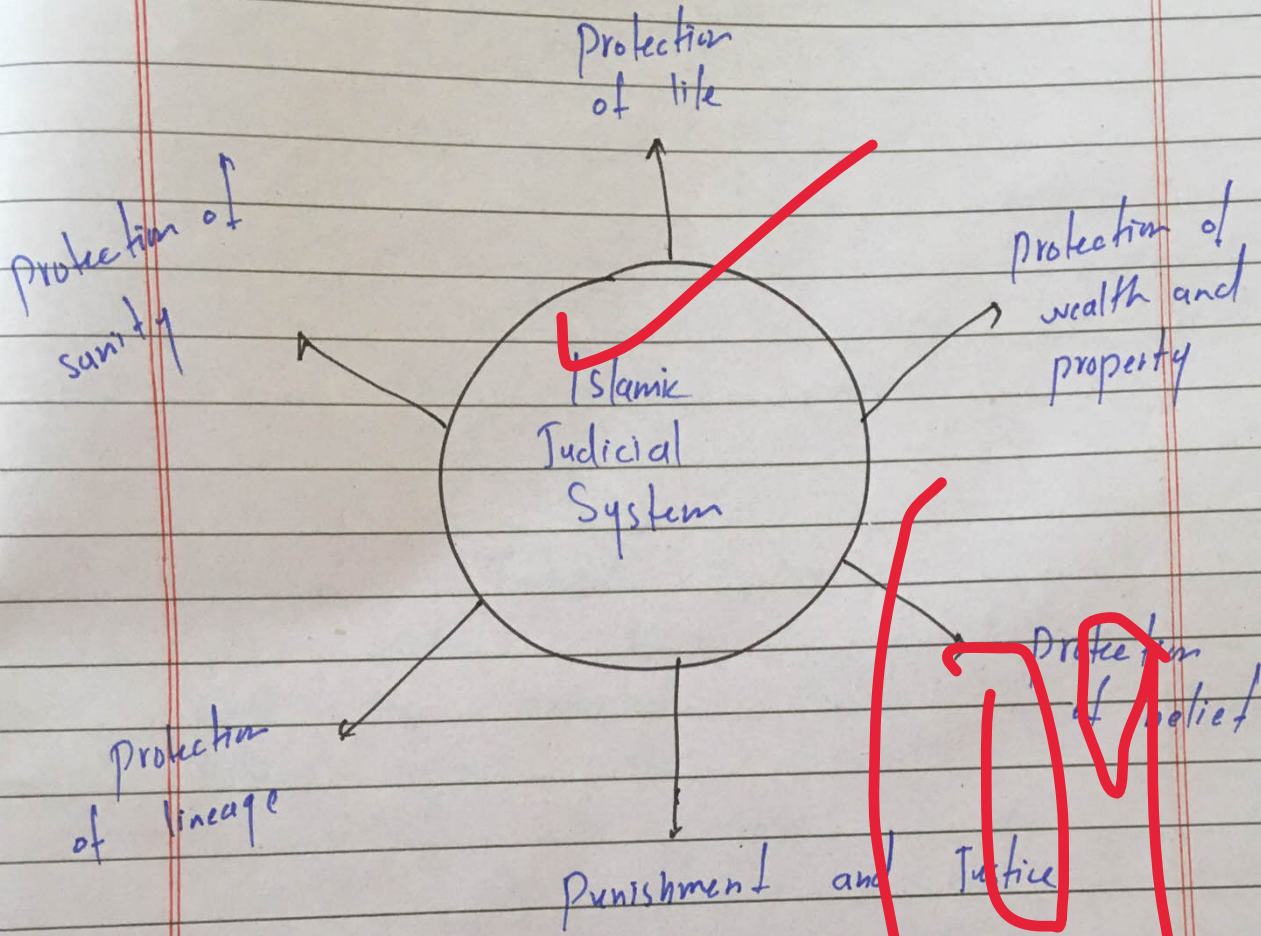 Protection
of life
Protection of
sanity
Protection of
wealth and
property
Islamic
Judicial
System
Protection
of belief
Protection
of lineage
Punishment and Justice